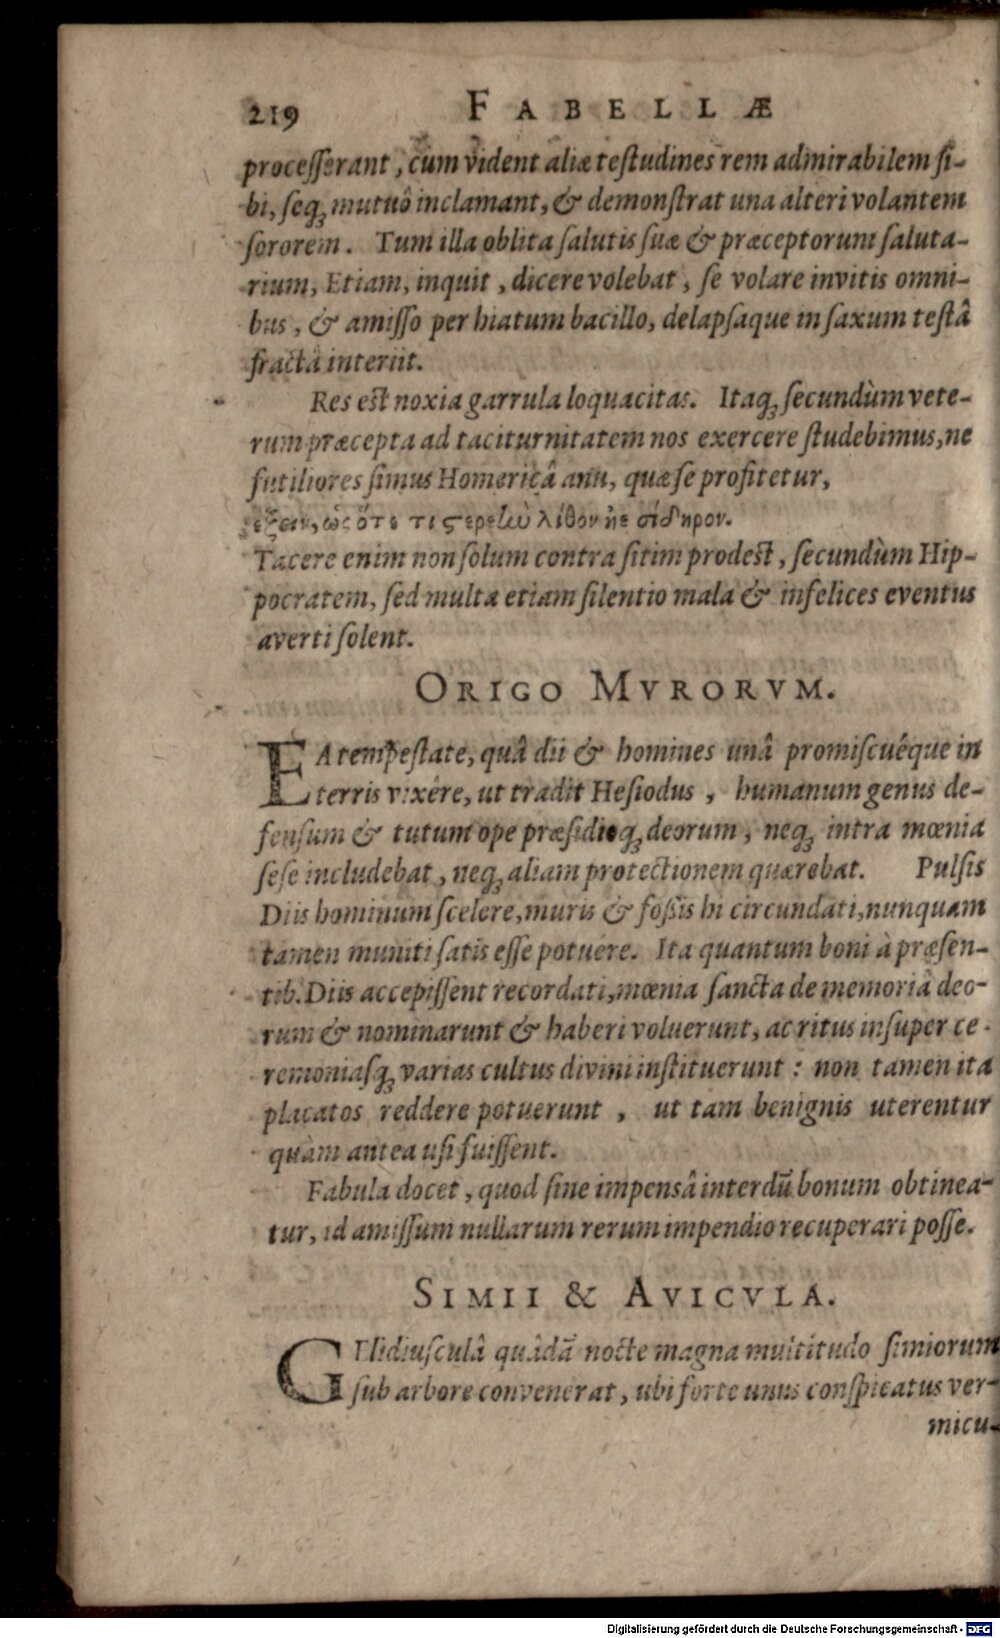 219 FABELLÆ
processerant, cùm vident aliæ testudines rem admirabilem si-
bi, seq; mutuò inclamant, & demonstrat una alteri volantem
sororem. Tum illa oblita salutis suæ & præceptorum saluta-
rium, Etiam, inquit, dicere volebat, se volare invitis omni-
bus, & amisso per hiatum bacillo, delapsaque in saxum testâ
fractâ interiit.
Res est noxia garrula loquacitas. Itaq; secundùm vete-
rum præcepta ad taciturnitatem nos exercere studebimus, ne
futiliores simus Homericâ anu, quæ se profitetur,
ἕξειν, ὡς ὅτε τις ςερεὴ λίθον ἠὲ σίδηρον.
Tacere enim non solum contra sitim prodest, secundùm Hip-
pocratem, sed multa etiam silentio mala & infelices eventus
averti solent.
ORIGO MVRORVM.
EA tempestate, quâ dii & homines unâ promiscuéque in
terris vixére, ut tradit Hesiodus, humanum genus de-
fensum & tutum ope præsidioq; deorum, neq; intra mœnia
sese includebat, neq; aliam protectionem quærebat. Pulsis
Diis hominum scelere, muris & fossis hi circundati, nunquam
tamen muniti satis esse potuere. Ita quantum boni à præsen-
tib. Diis accepissent recordati, mœnia sancta de memoriâ deo-
rum & nominarunt & haberi voluerunt, ac ritus insuper ce-
remoniasq; varias cultus divini instituerunt: non tamen ita
placatos reddere potuerunt, ut tam benignis uterentur
quàm antea usi fuissent.
Fabula docet, quod sine impensâ interdū bonum obtinea-
tur, id amissum nullarum rerum impendio recuperari posse.
SIMII & AVICVLA.
GElidiusculâ quâdā nocte magna multitudo simiorum
sub arbore convenerat, ubi forte unus conspicatus ver-
micu-
Digitalisierung gefördert durch die Deutsche Forschungsgemeinschaft - DFG